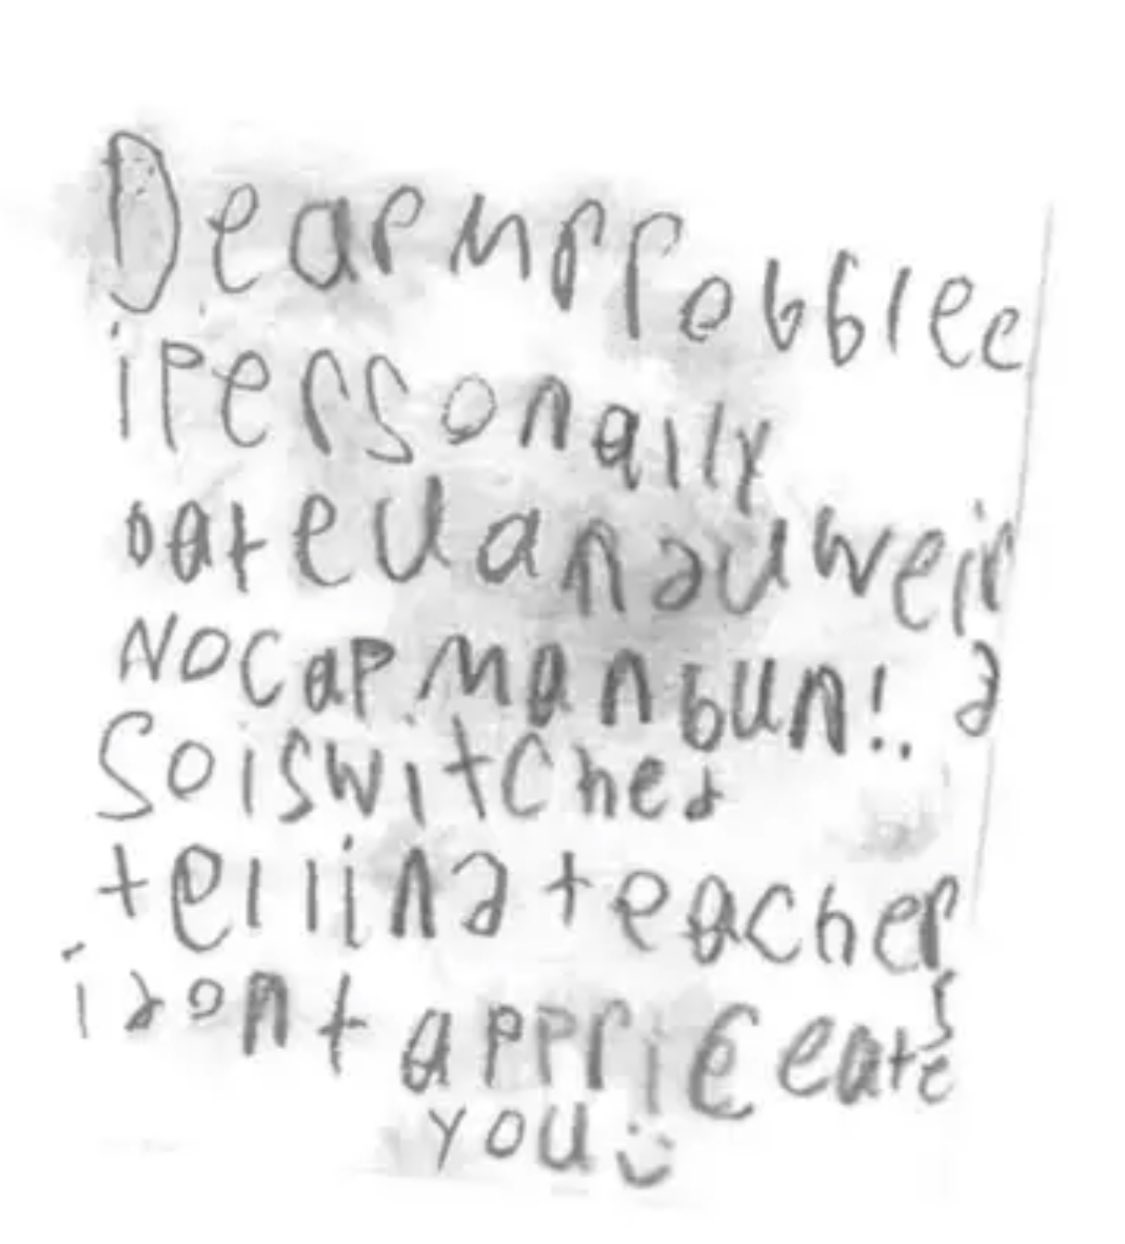 Dear mr Pebblee
i Personally
oate U and U weir
No cap man bun!. d
So i switched
tellind teacher
s
i dont appriceate
you :)